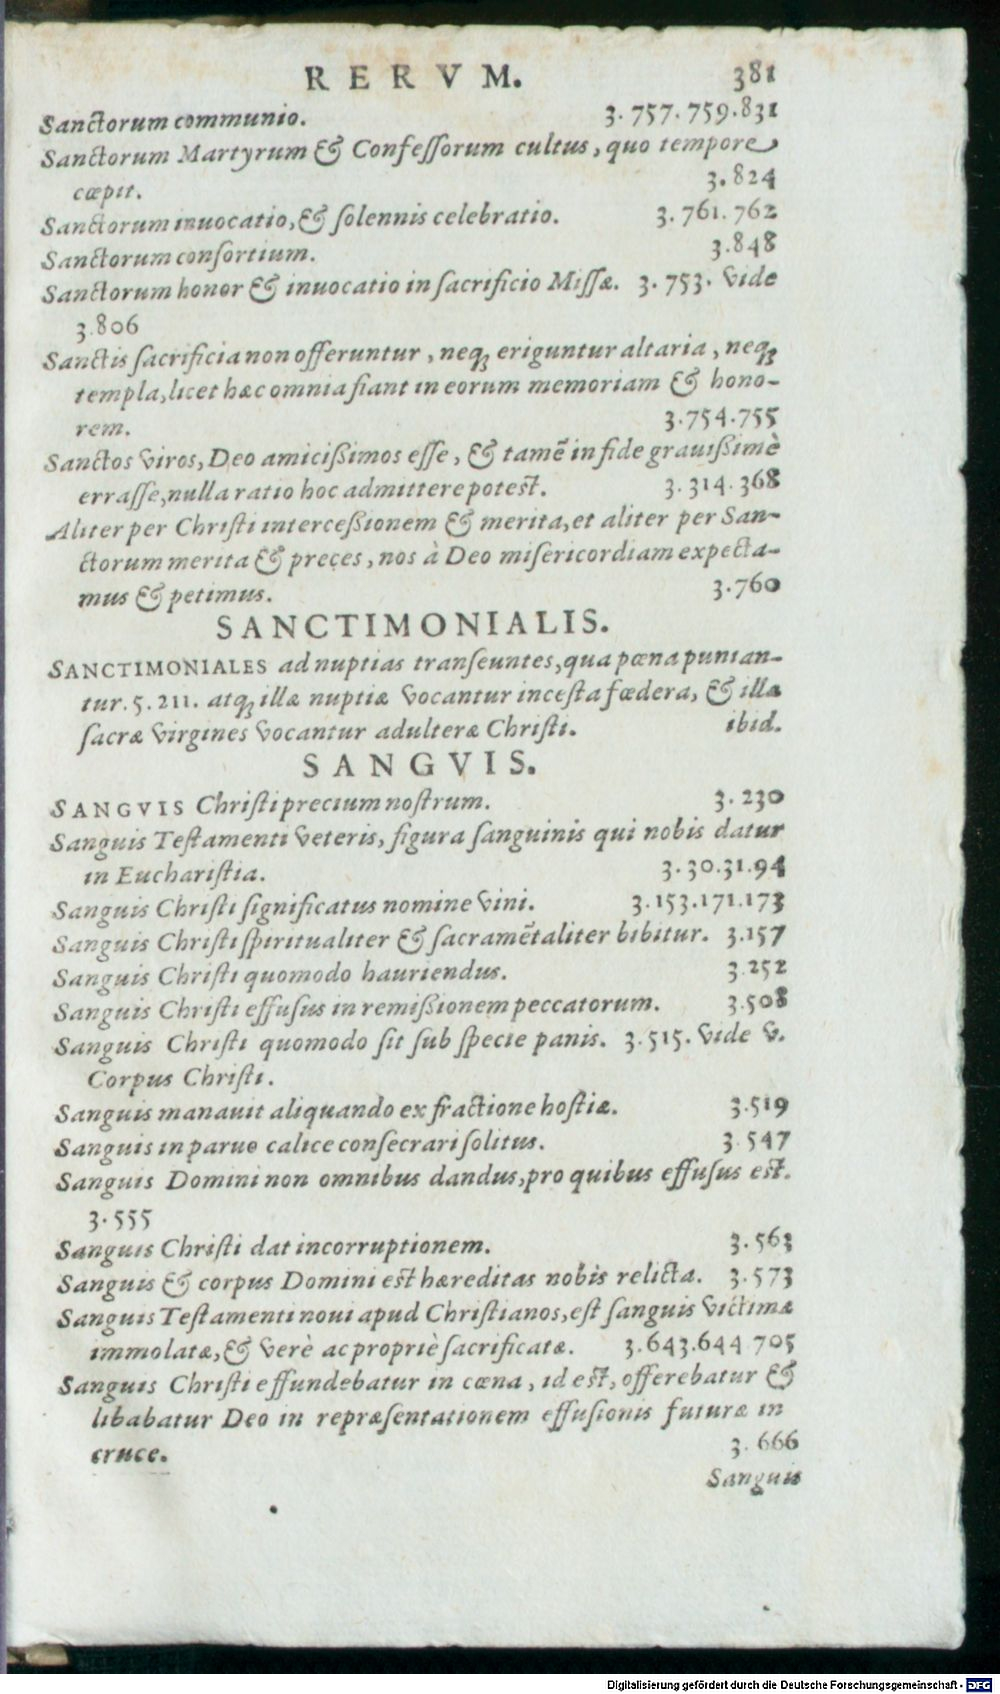 RERVM. 381
Sanctorum communio. 3. 757. 759. 831
Sanctorum Martyrum & Confeſſorum cultus, quo tempore
cœpit. 3. 824
Sanctorum inuocatio, & ſolennis celebratio. 3. 761. 762
Sanctorum conſortium. 3. 848
Sanctorum honor & inuocatio in ſacrificio Miſſæ. 3. 753. Vide
3.806
Sanctis ſacrificia non offeruntur, neq; eriguntur altaria, neq;
templa, licet hæc omnia fiant in eorum memoriam & hono-
rem. 3.754.755
Sanctos viros, Deo amicißimos eſſe, & tamẽ in fide grauißimè
erraſſe, nulla ratio hoc admittere poteſt. 3. 314. 368
Aliter per Chriſti interceßionem & merita, et aliter per San-
ctorum merita & preces, nos à Deo miſericordiam expecta-
mus & petimus. 3.760
SANCTIMONIALIS.
SANCTIMONIALES ad nuptias tranſeuntes, qua pœna punian-
tur. 5. 211. atq; illæ nuptiæ vocantur inceſta fœdera, & illæ
ſacræ virgines vocantur adulteræ Chriſti. ibid.
SANGVIS.
SANGVIS Chriſti precium noſtrum. 3. 230
Sanguis Teſtamenti veteris, figura ſanguinis qui nobis datur
in Euchariſtia. 3. 30.31.94
Sanguis Chriſti ſignificatus nomine vini. 3.153.171.173
Sanguis Chriſti ſpiritualiter & ſacramẽtaliter bibitur. 3.157
Sanguis Chriſti quomodo hauriendus. 3.252
Sanguis Chriſti effuſus in remißionem peccatorum. 3.508
Sanguis Chriſti quomodo ſit ſub ſpecie panis. 3.515. Vide v.
Corpus Chriſti.
Sanguis manauit aliquando ex fractione hoſtiæ. 3.519
Sanguis in paruo calice conſecrari ſolitus. 3. 547
Sanguis Domini non omnibus dandus, pro quibus effuſus eſt.
3.555
Sanguis Chriſti dat incorruptionem. 3.563
Sanguis & corpus Domini eſt hæreditas nobis relicta. 3.573
Sanguis Teſtamenti noui apud Chriſtianos, eſt ſanguis victimæ
immolatæ, & verè ac propriè ſacrificatæ. 3.643.644 705
Sanguis Chriſti effundebatur in cœna, id eſt, offerebatur &
libabatur Deo in repræſentationem effuſionis futuræ in
cruce. 3. 666
Sanguis
Digitalisierung gefördert durch die Deutsche Forschungsgemeinschaft - DFG